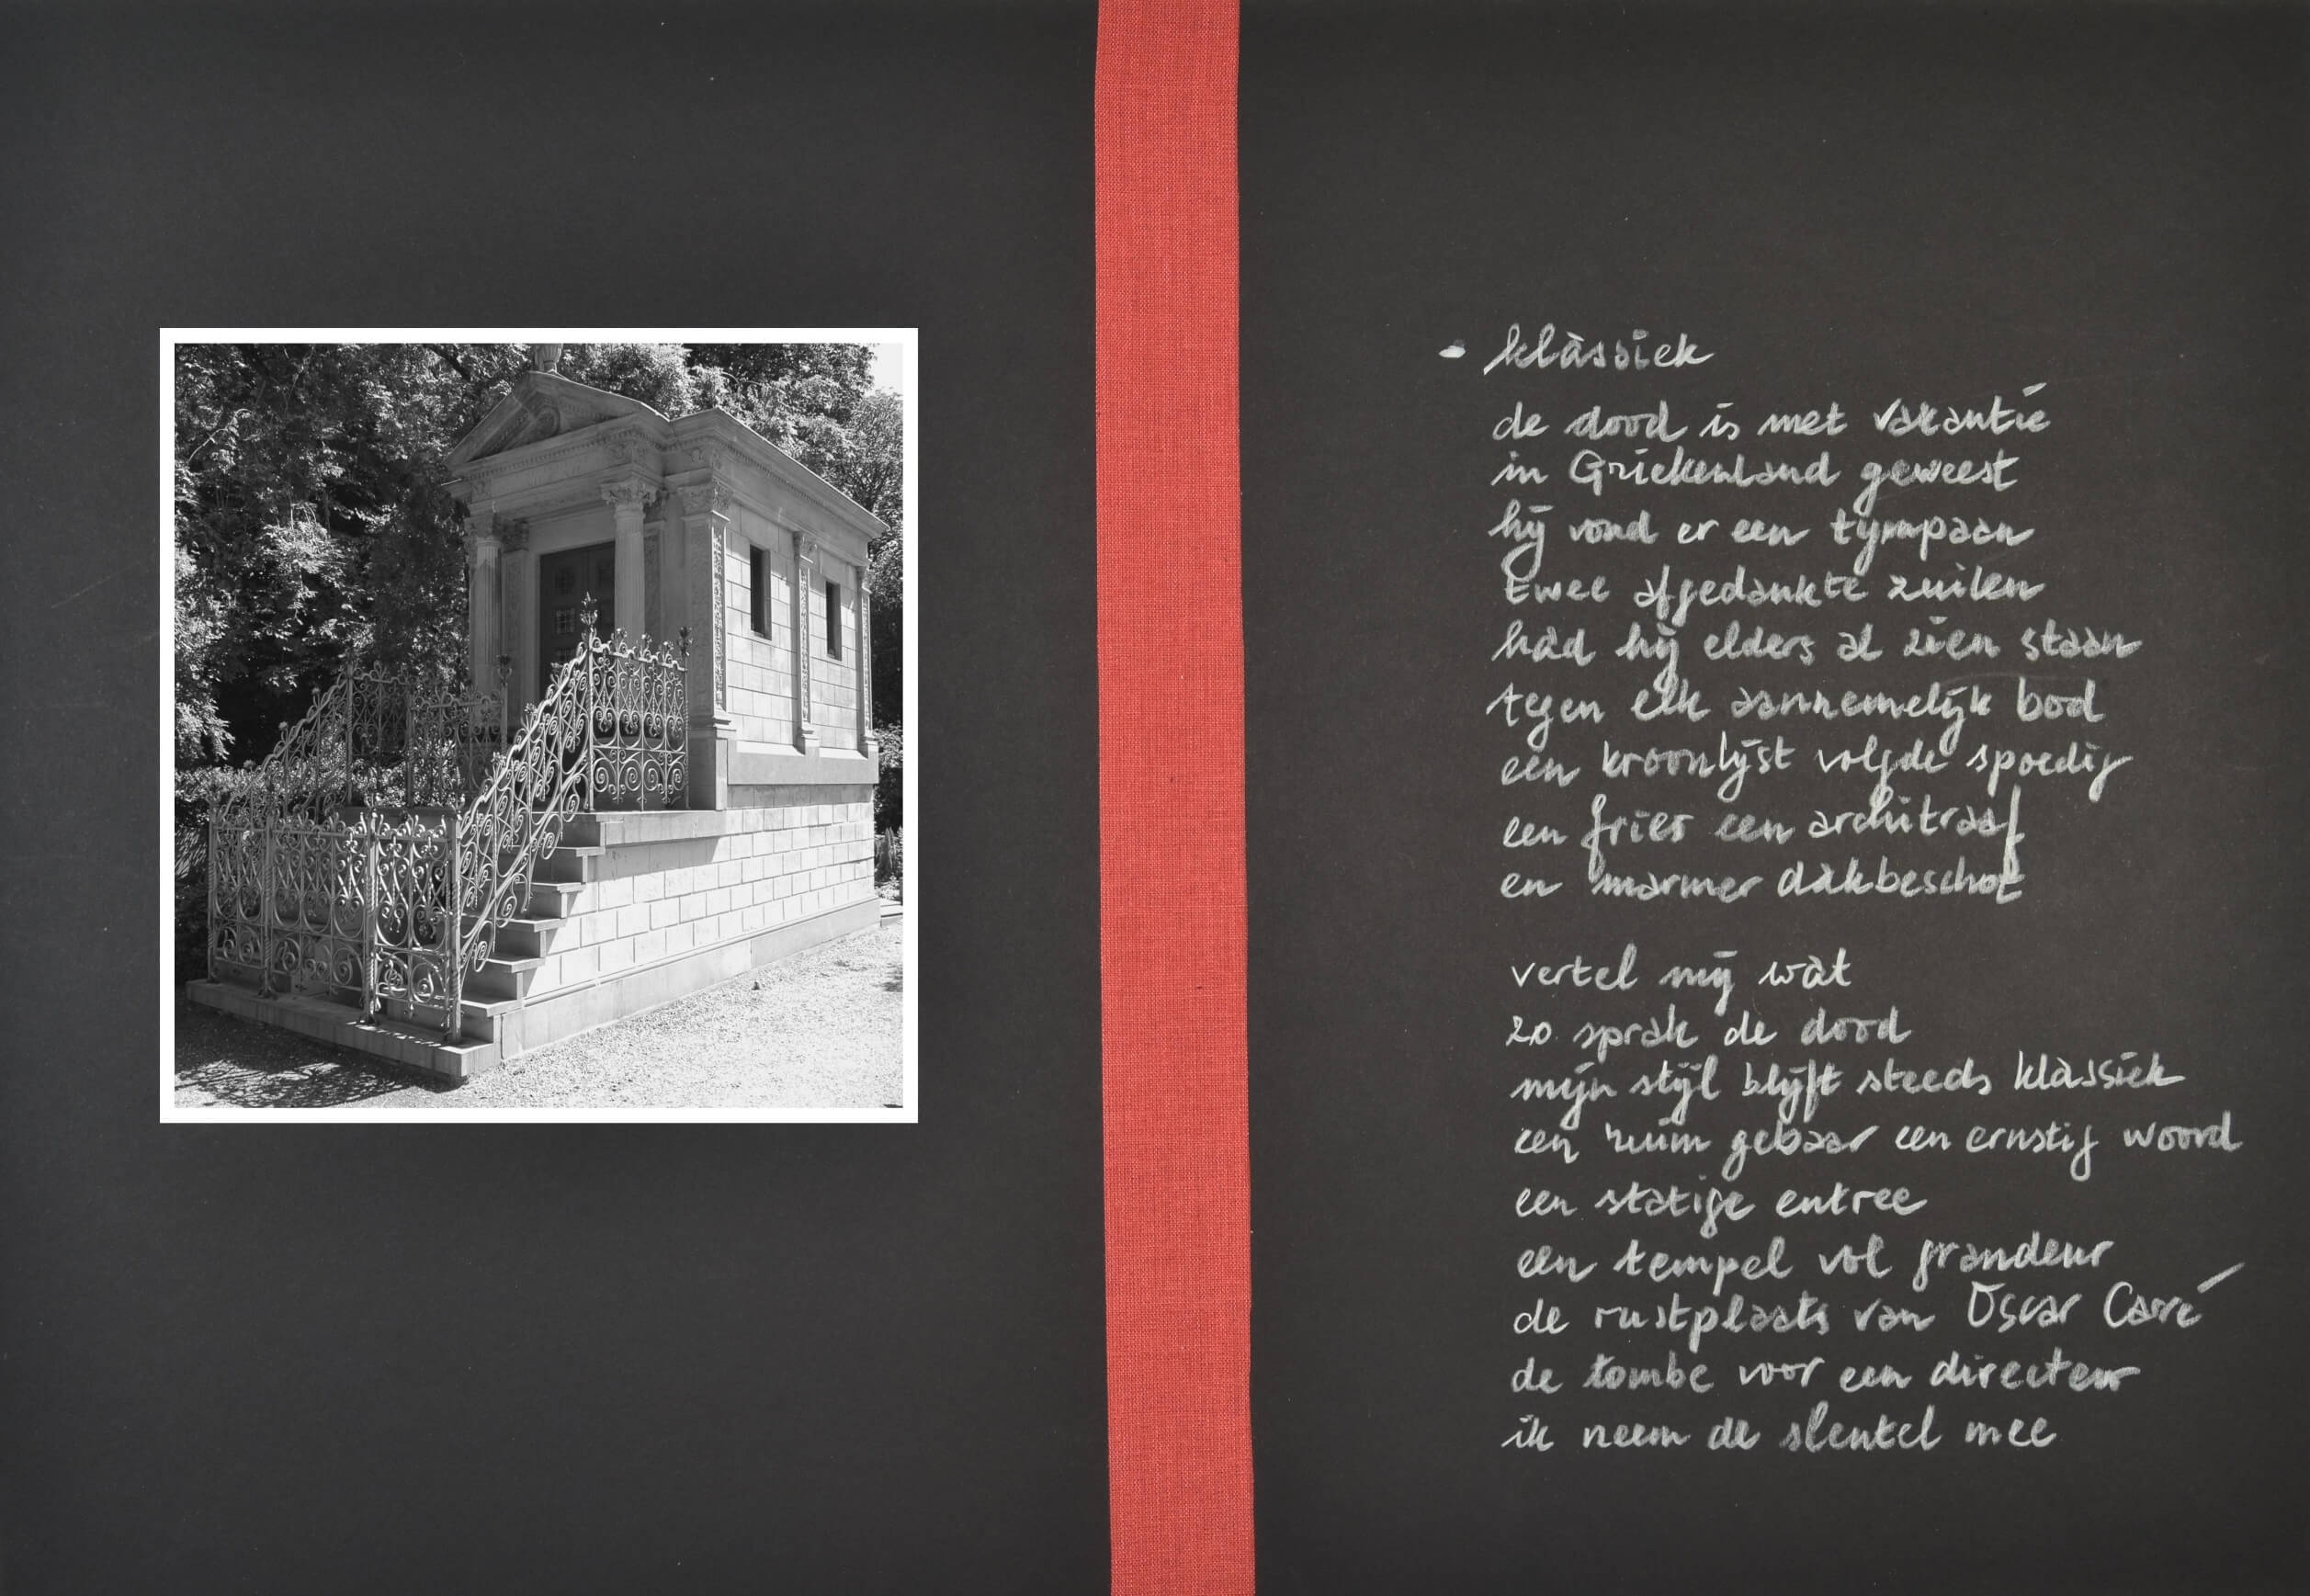 - klassiek
de dood is met vakantie
in Griekenland geweest
hij vond er een tympaan
twee afgedankte zuilen
had hij elders al zien staan
tegen elk aannemelijk bod
een kroonlijst volgde spoedig
een fries een architraaf
en marmer dakbeschot
vertel mij wat
zo sprak de dood
mijn stijl blijft steeds klassiek
een ruim gebaar een ernstig woord
een statige entree
een tempel vol grandeur
de rustplaats van Oscar Carré
de tombe voor een directeur
ik neem de sleutel mee